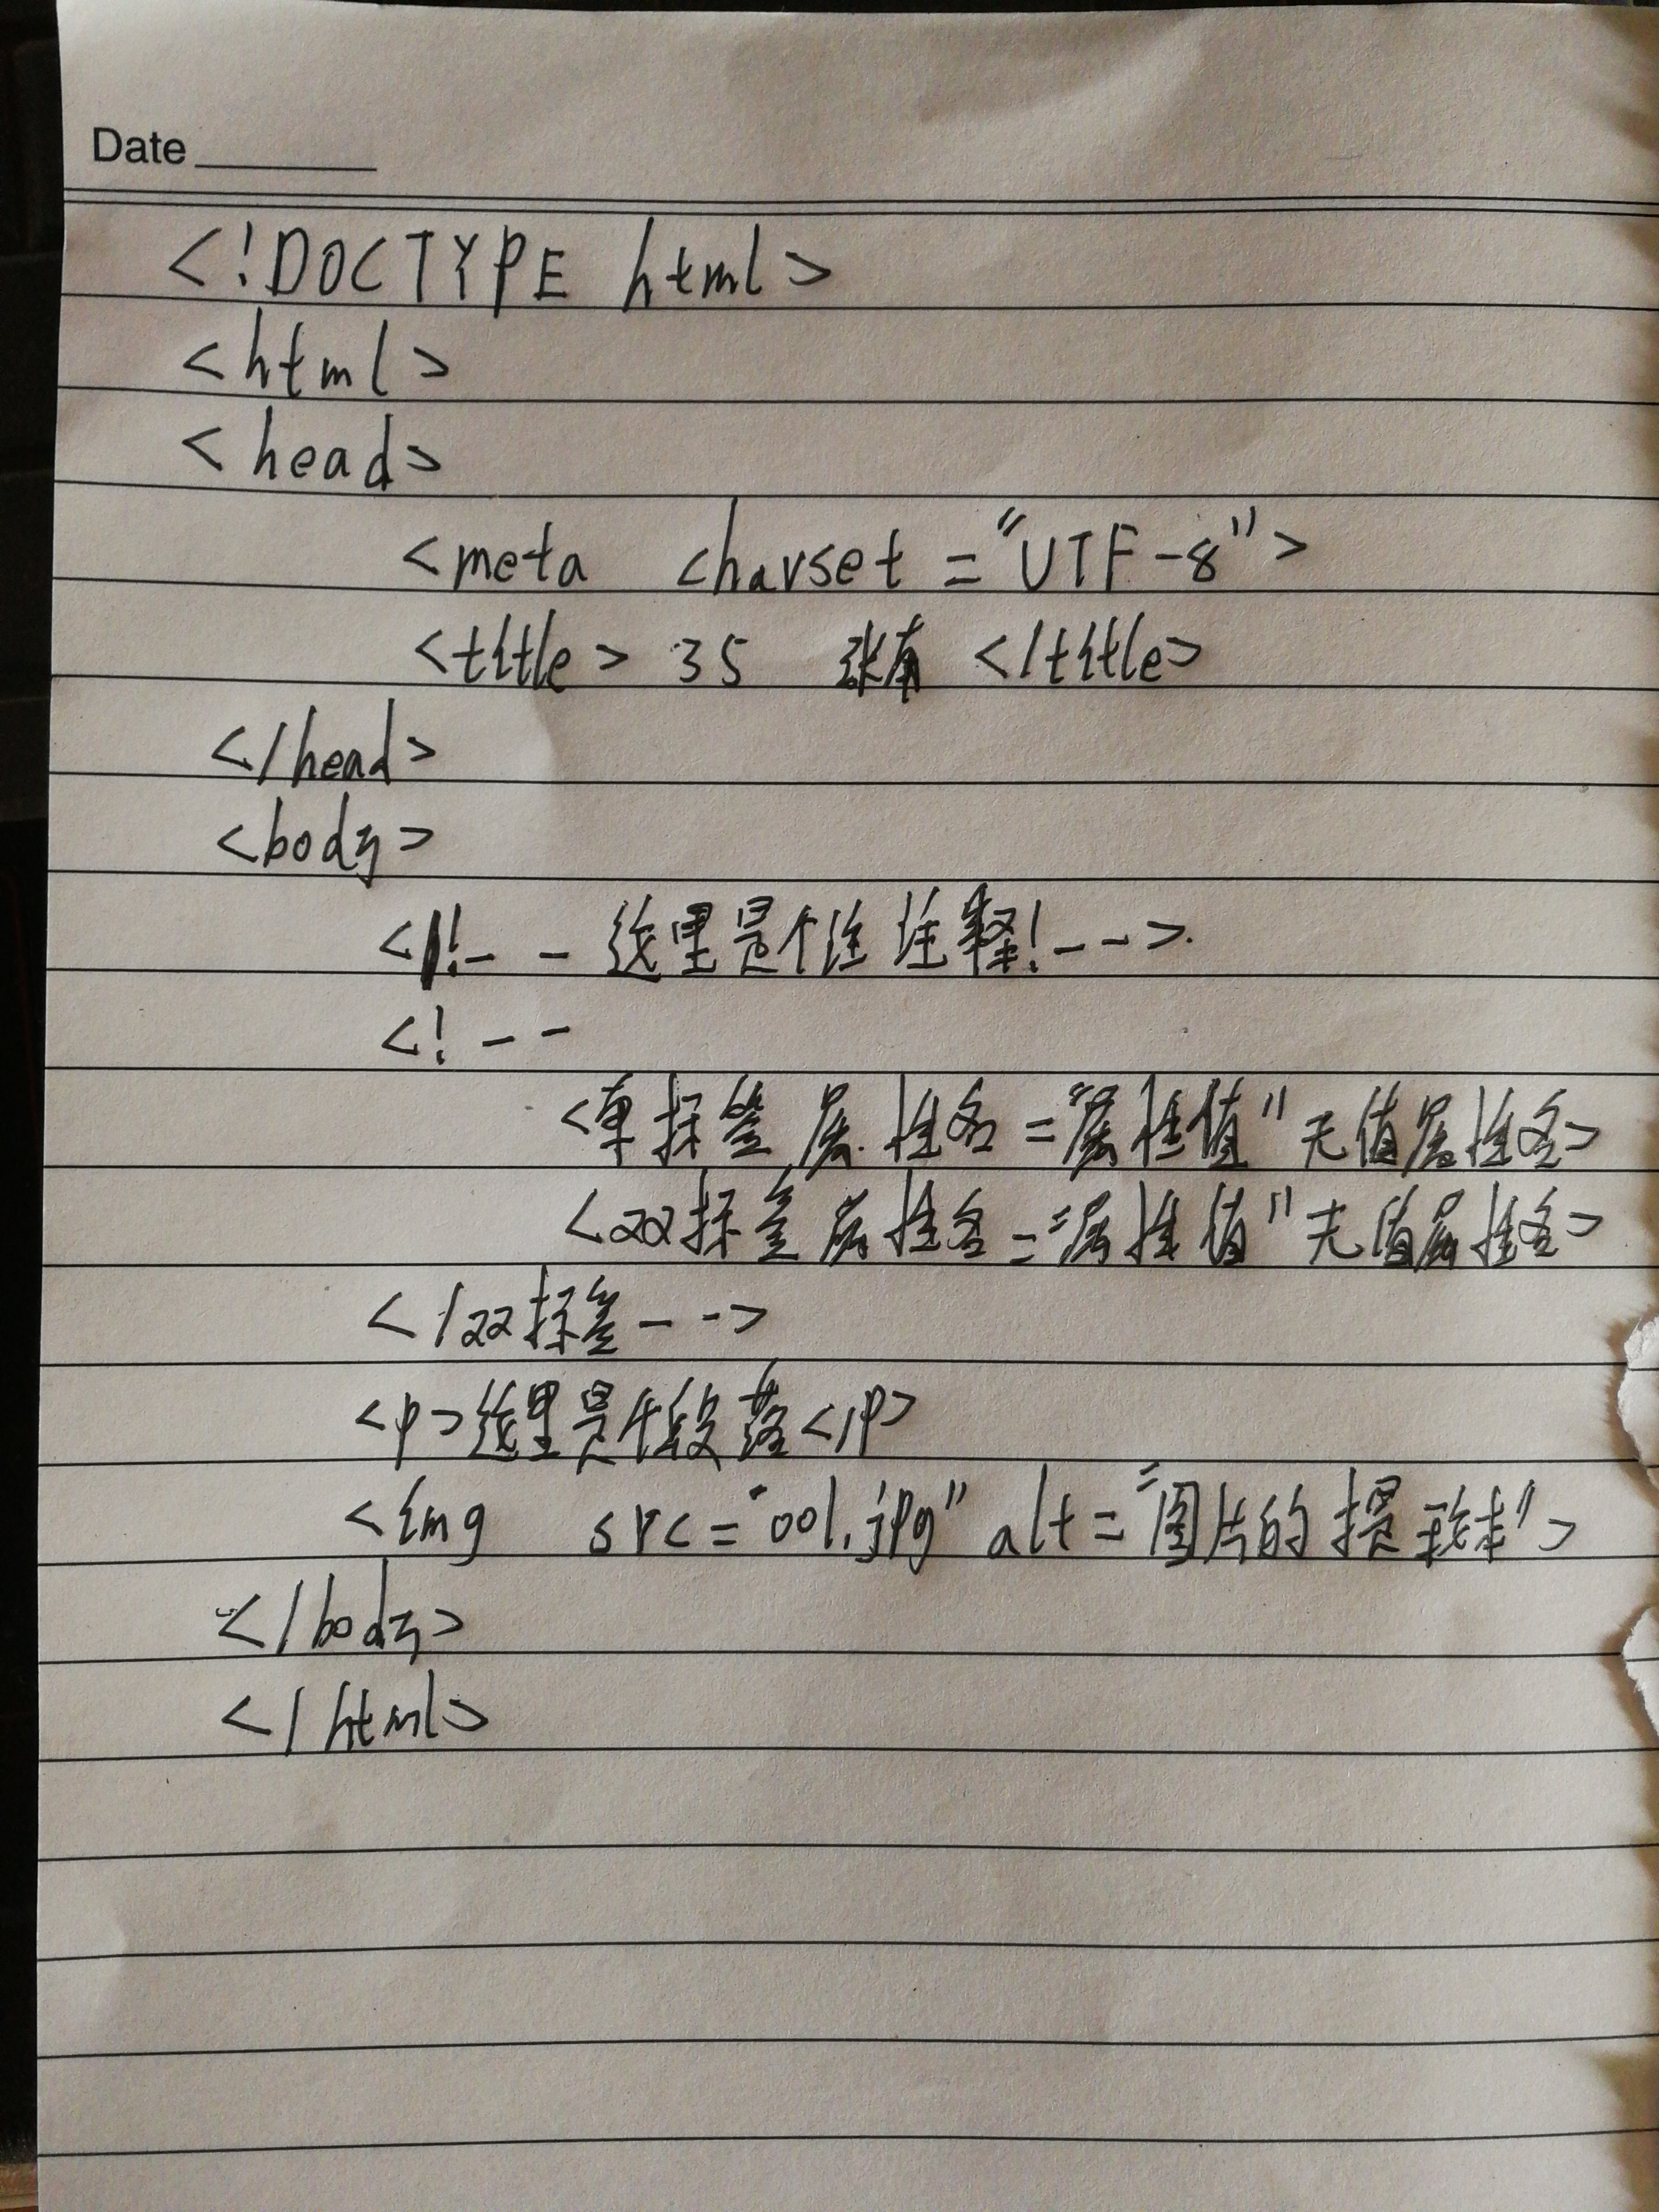 Date
<!DOCTYPE html>
<html>
<head>
<meta charset="UTF-8">
<title> 35 张有 </title>
</head>
<body>
<!-- 这里是个注 注释!-->
<!--
<单标签 属性名="属性值" 无值属性名>
<双标签 属性名="属性值" 无值属性名>
</双标签-->
<p>这里是个段落</p>
<img src="001.jpg" alt="图片的提
</body>
</html>